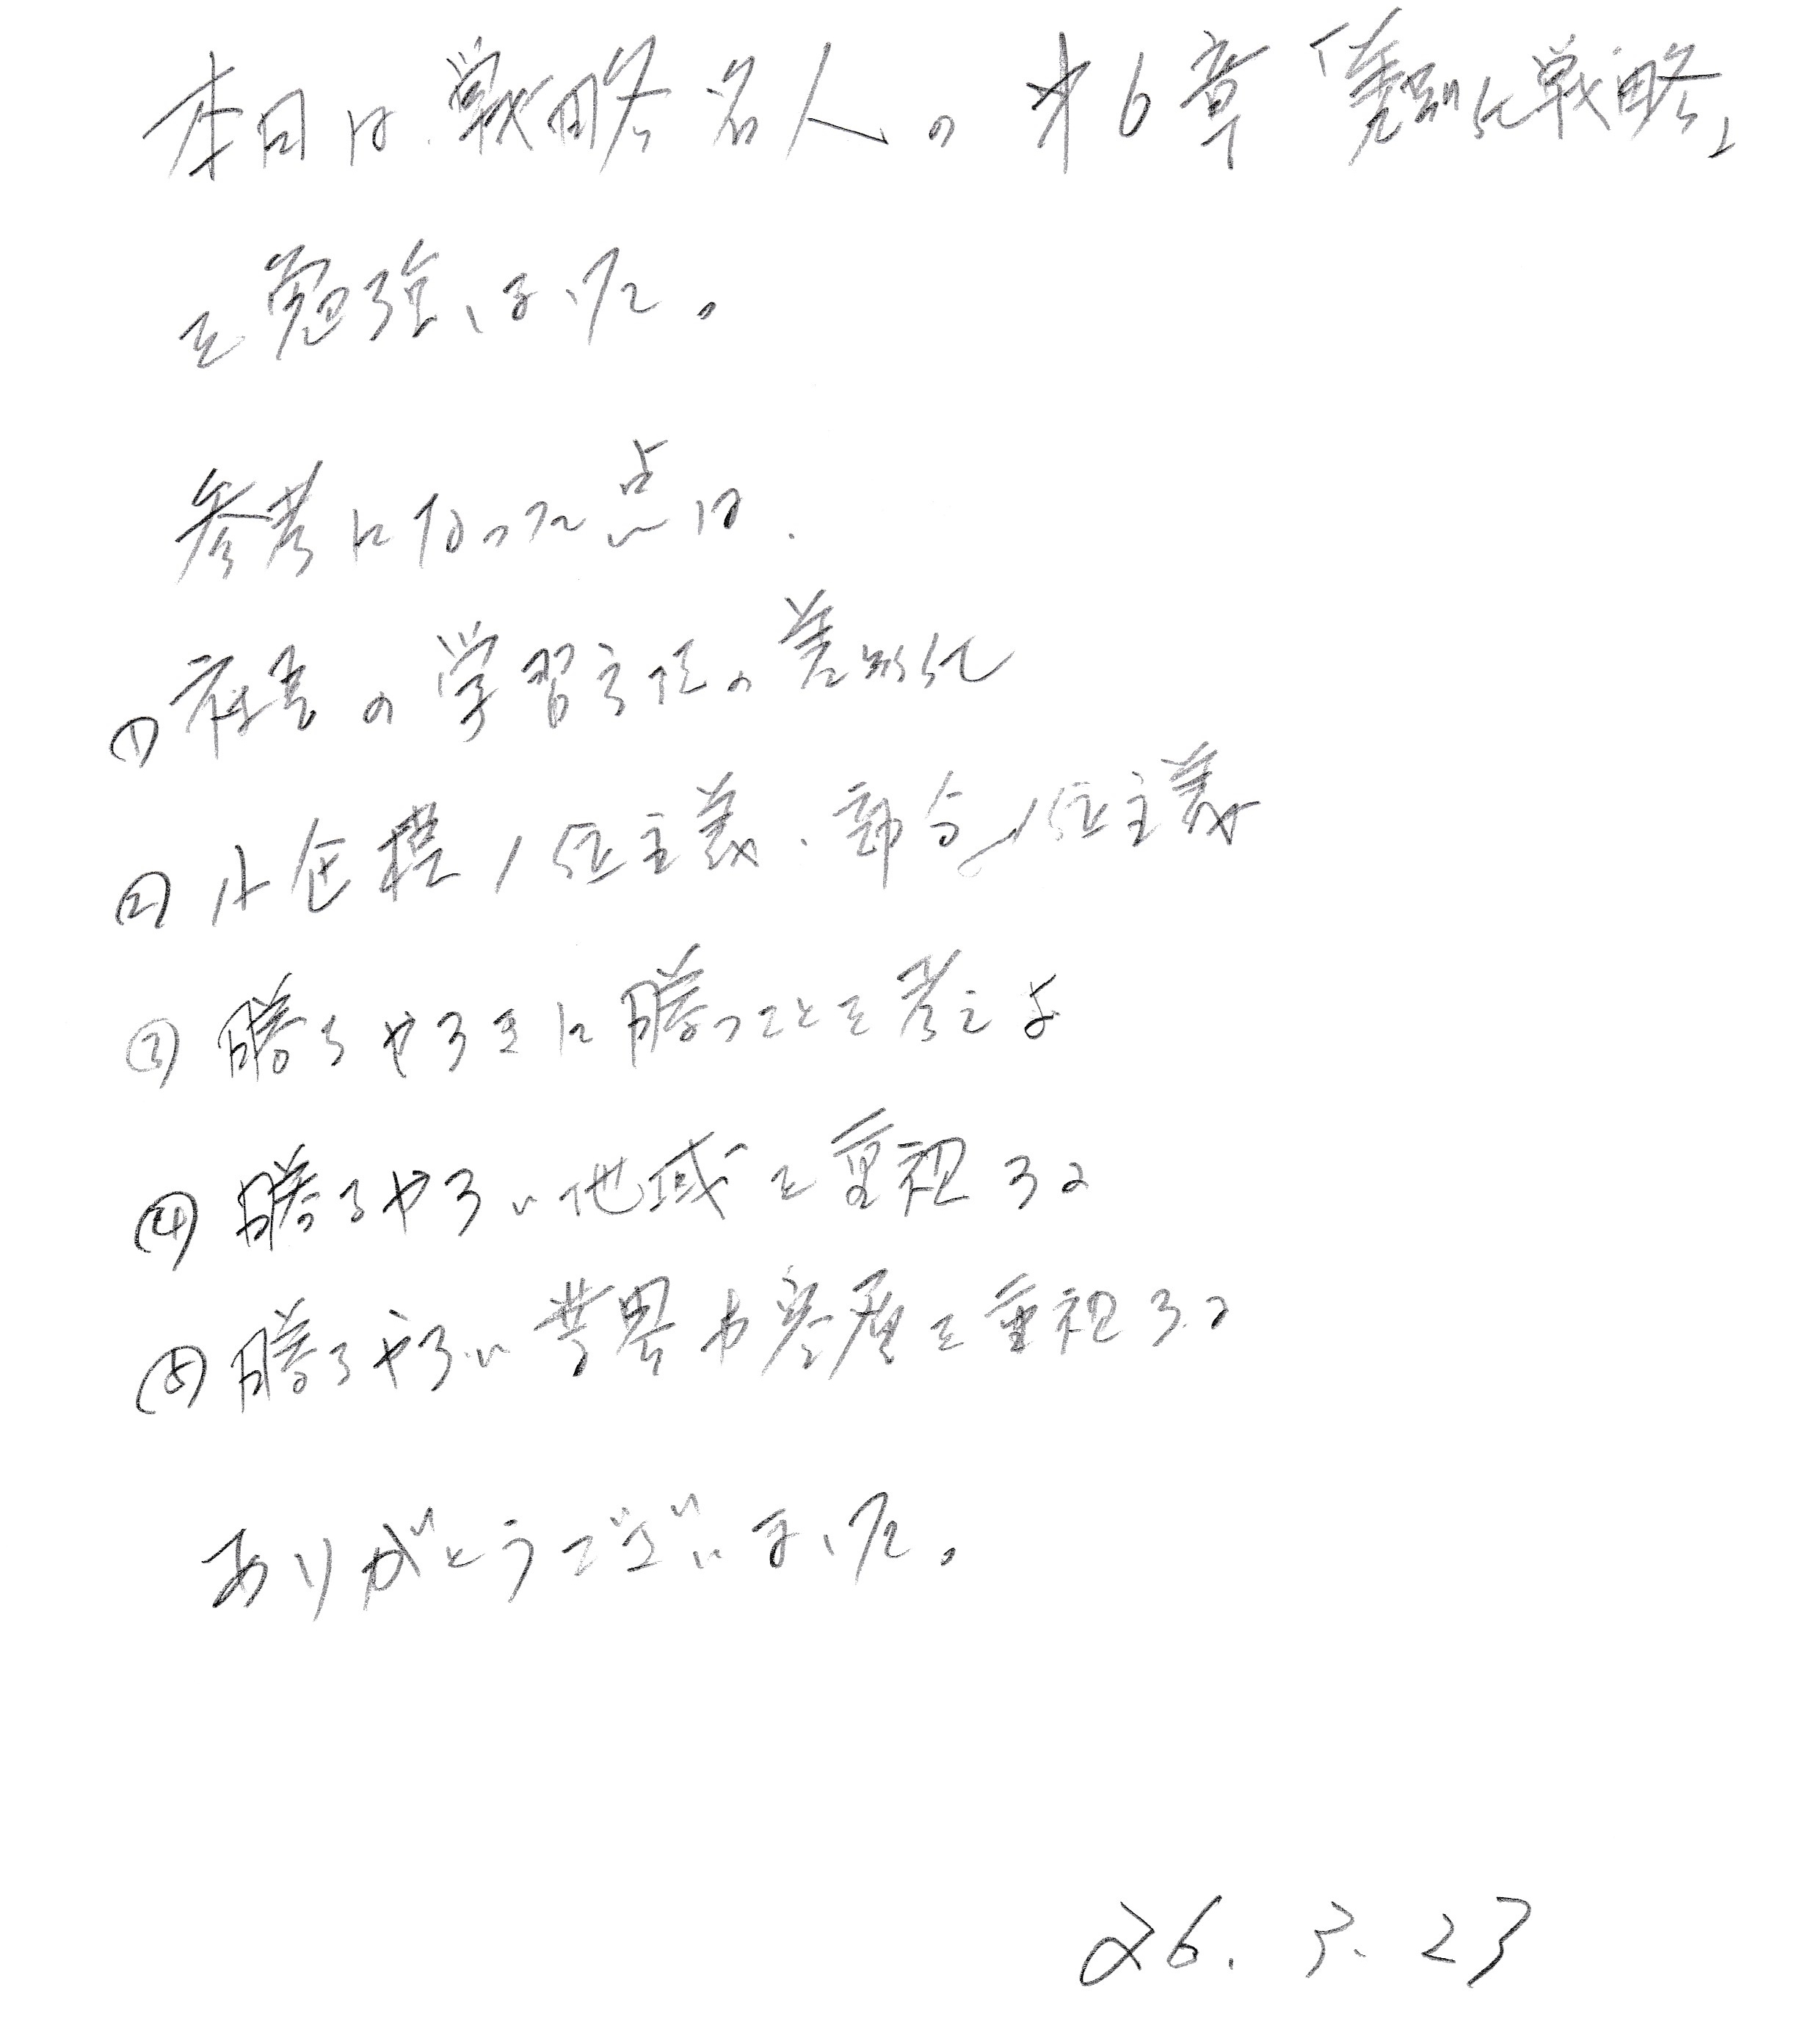 本日は、戦略名人の第6章「差別化戦略」
を勉強しました。
参考になった点は、
① 社長の学習方法の差別化
② 小企模1位主義、部分1位主義
③ 勝ちやすきに勝つことを考えよ
④ 勝ちやすい地域を重視する
⑤ 勝ちやすい業界や客層を重視する
ありがとうございました。
26.3.23